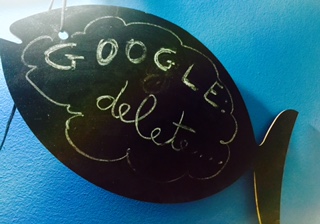 GOOGLE:
delete...